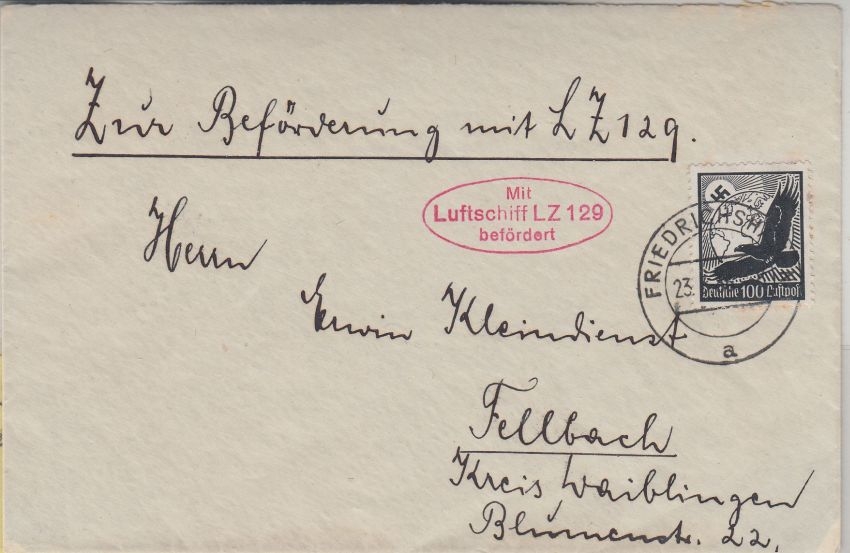 Zur Beförderung mit LZ129.
Mit
Luftschiff LZ 129
befördert
Herrn
FRIEDRICHSHA
23.
Deutsche 100 Luftpost
a
Erwin Kleindienst
Fellbach
Kreis Waiblingen
Blumenstr. 22.